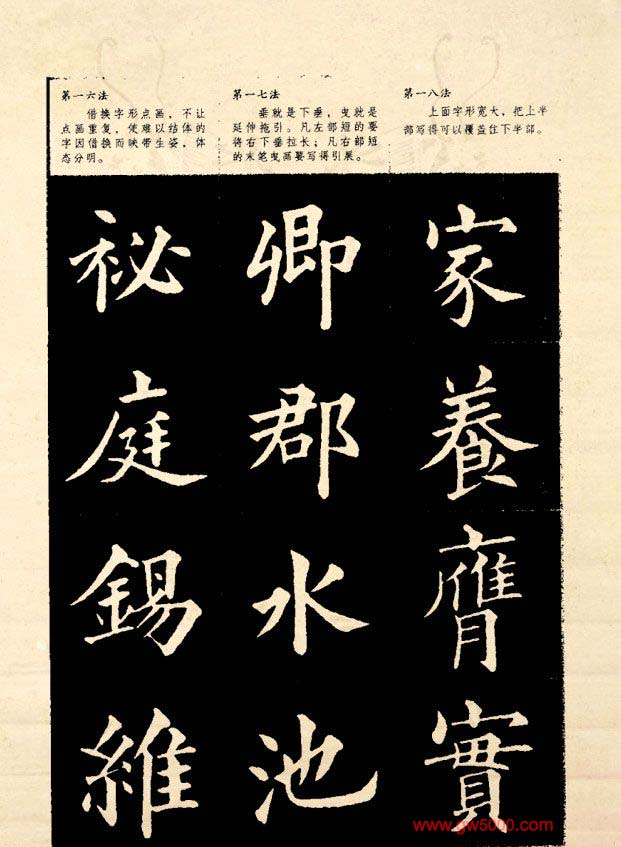 第一六法
借换字形点画，不让
点画重复，使难以结体的
字因借换而映带生姿，体
态分明。
第一七法
垂就是下垂，曳就是
延伸拖引。凡左部短的要
将右下垂拉长；凡右部短
的末笔曳画要写得引展。
第一八法
上面字形宽大，把上半
部写得可以覆盖住下半部。
祕
庭
錫
維
卿
郡
水
池
家
養
膺
實
www.gw5000.com